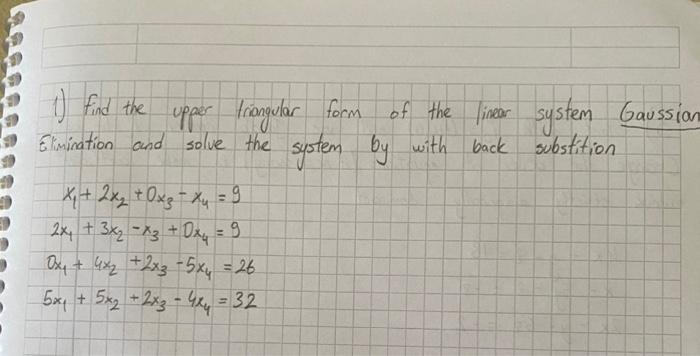 1) find the upper triangular form of the linear system Gaussian
Elimination and solve the system by with back substition
x₁ + 2x₂ + 0x₃ - x₄ = 9
2x₁ + 3x₂ - x₃ + 0x₄ = 9
0x₁ + 4x₂ + 2x₃ - 5x₄ = 26
5x₁ + 5x₂ + 2x₃ - 4x₄ = 32